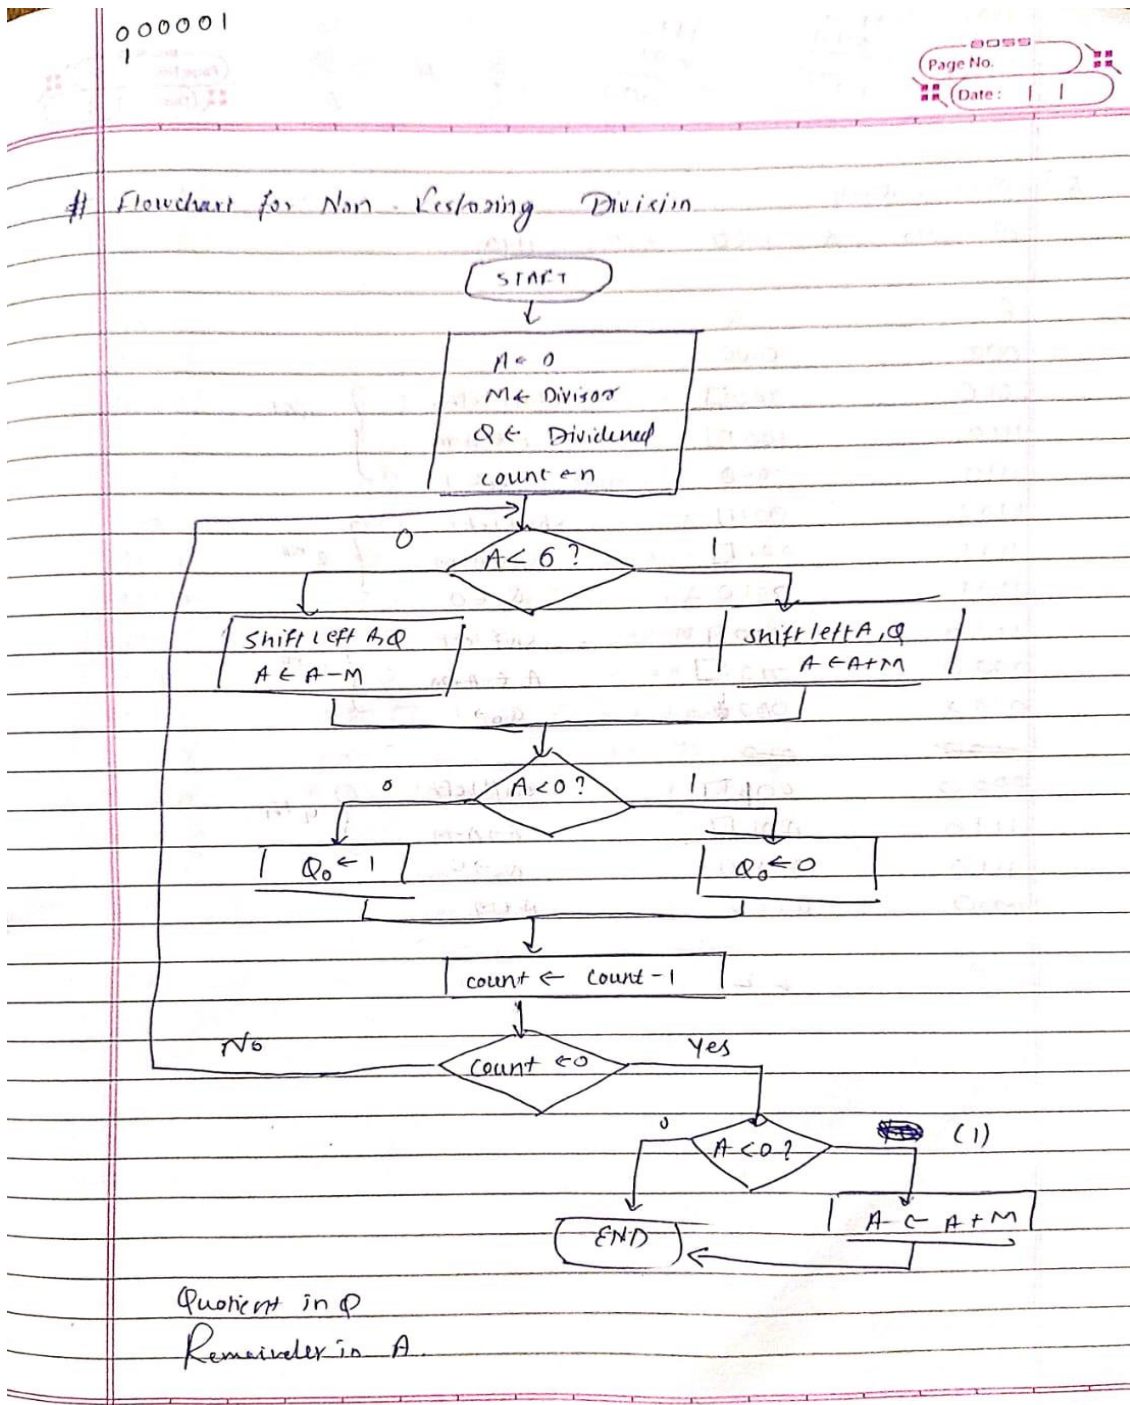 000001
1
BOSS
Page No.
Date :
# Flowchart for Non-Restoring Division
START
A ← 0
M ← Divisor
Q ← Dividened
count ← n
0
A < 0 ?
1
Shift Left A,Q
A ← A - M
shift left A,Q
A ← A + M
0
A < 0 ?
1
Q₀ ← 1
Q₀ ← 0
count ← count - 1
No
count ← 0
Yes
0
A < 0 ?
(1)
END
A ← A + M
Quotient in Q
Remainder in A.